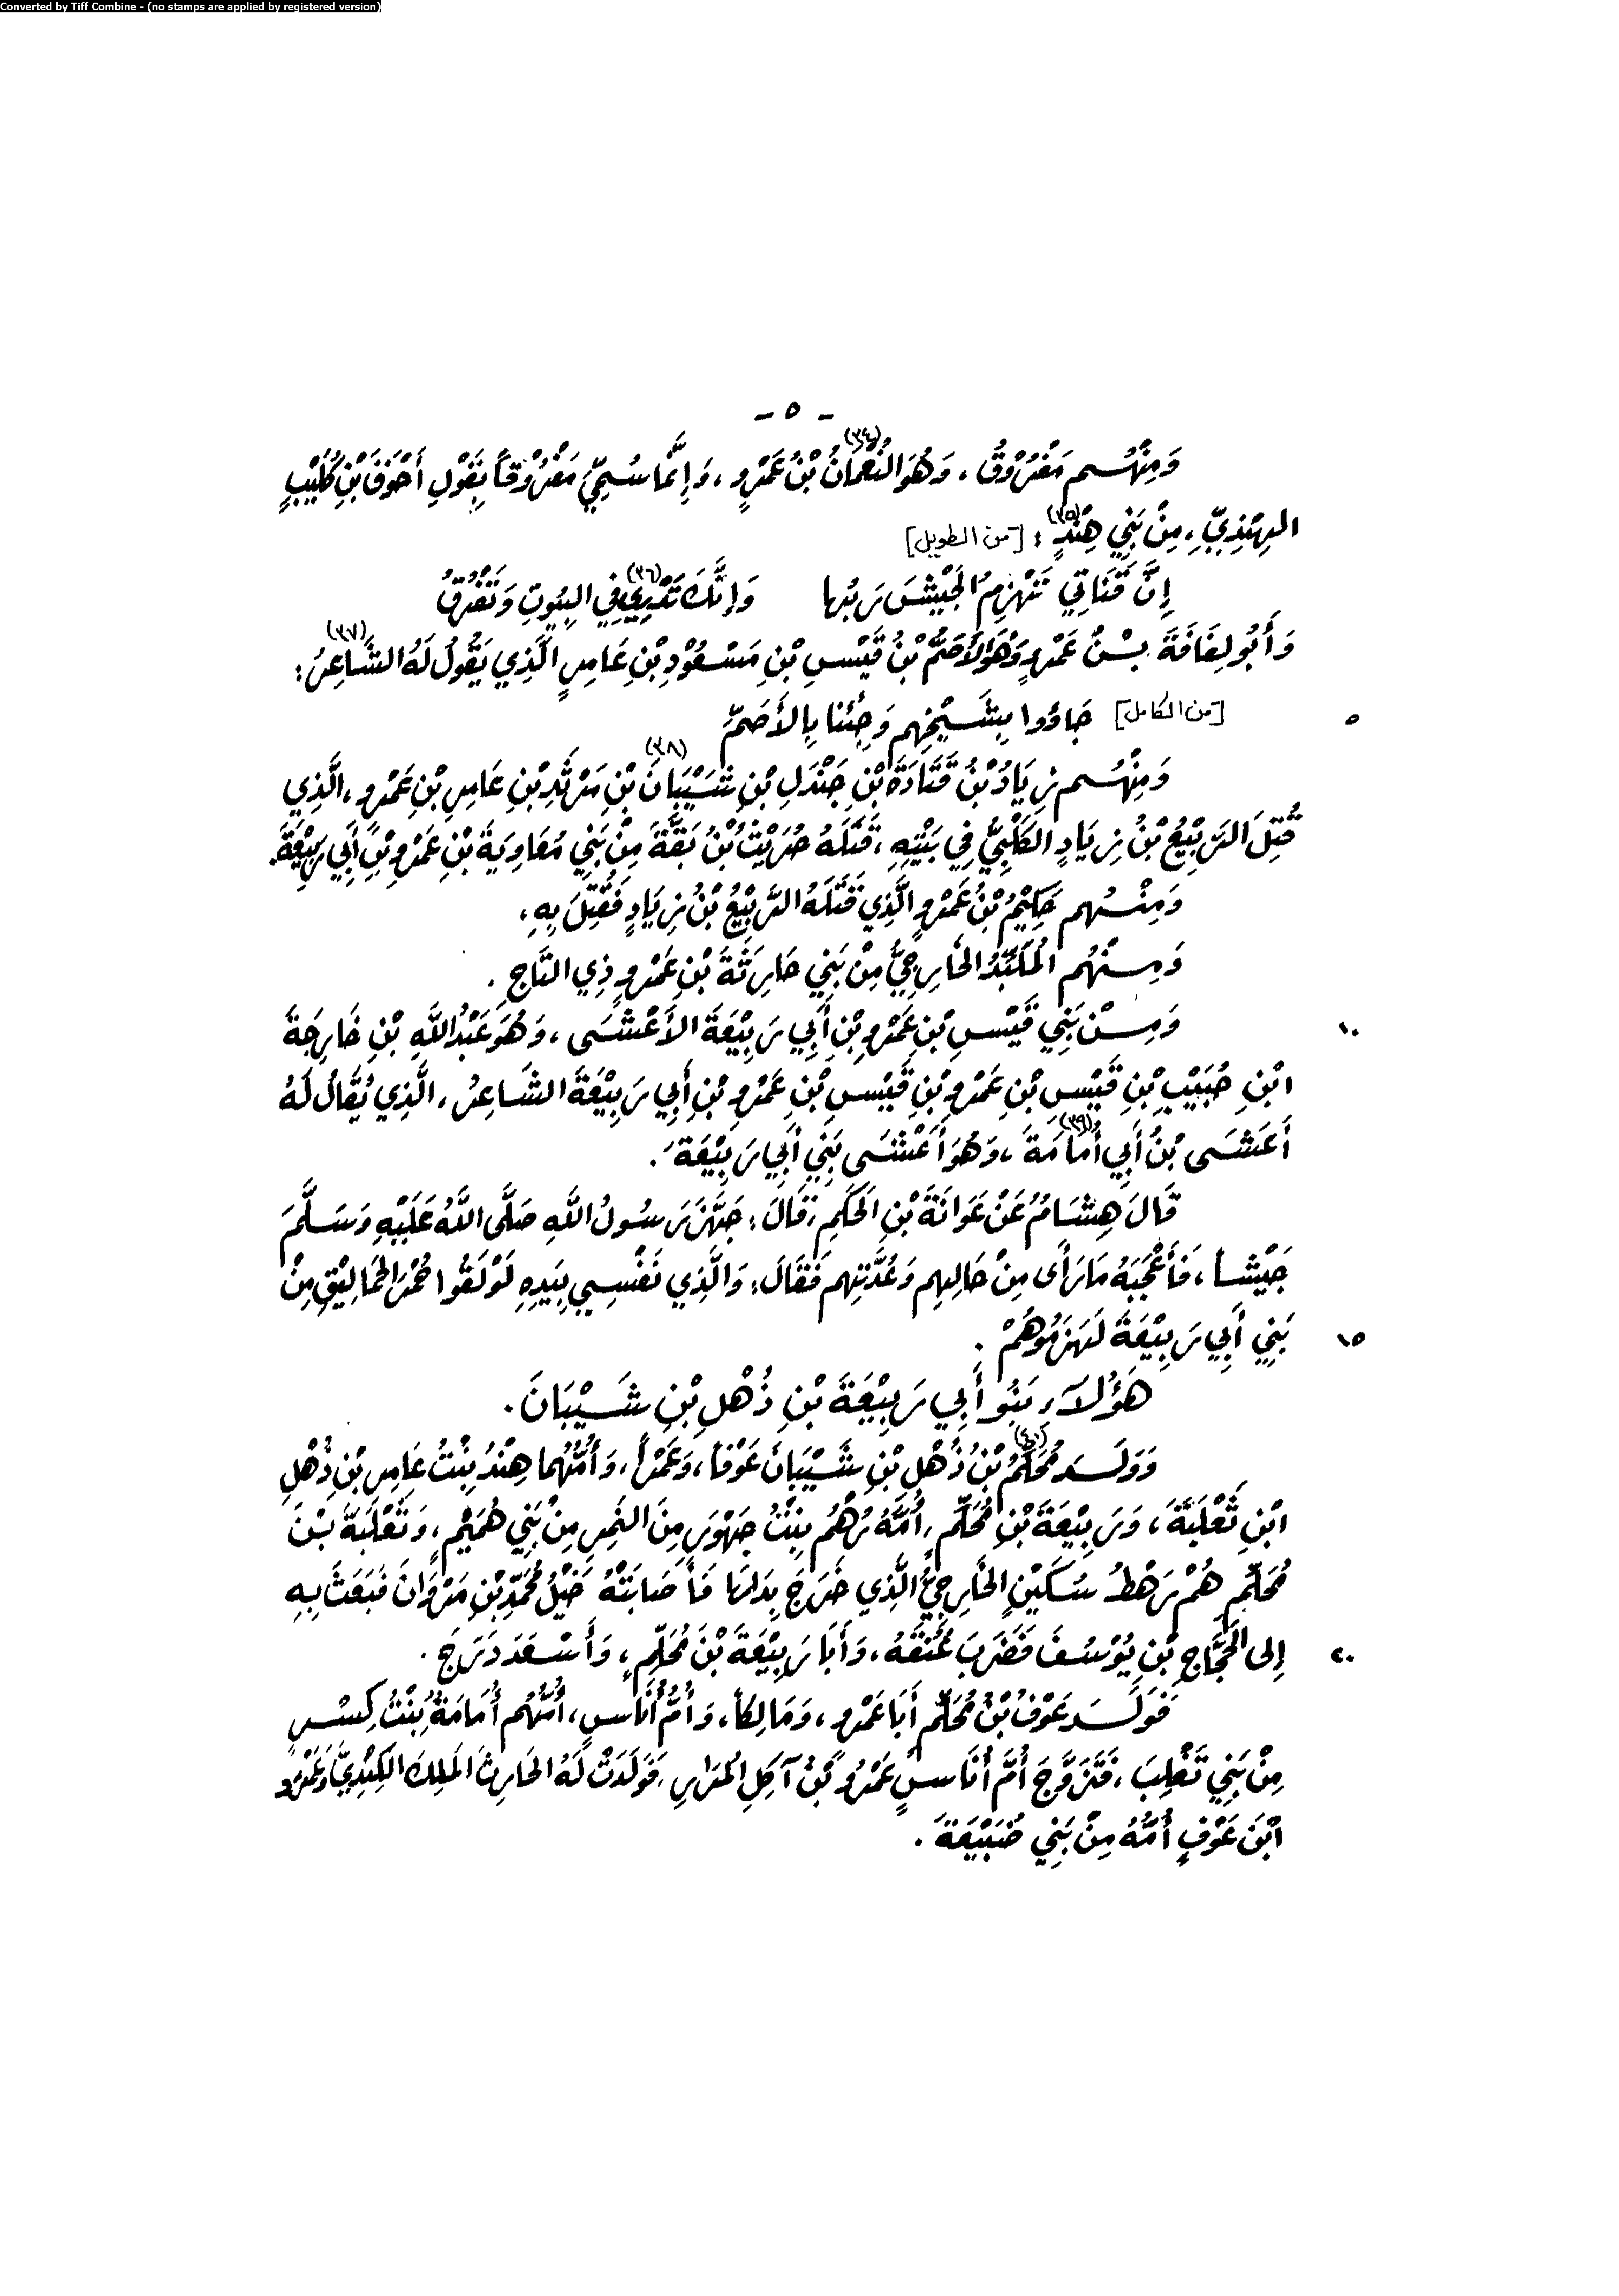 Converted by Tiff Combine - (no stamps are applied by registered version)
- ٥ -
وَمِنْهُم مَفْرُوْقٌ ، وَهُوَ النُّعْمَانُ (٣٤) بْنُ عَمْرٍو ، وَإِنَّمَا سُمِّيَ مَفْرُوْقاً بِقَوْلِ أَحْوَفَ بْنِ كُلَيْبٍ
الهِنْدِيِّ ، مِنْ بَنِي هِنْدٍ (٣٥) : [من الطويل]
إِنَّ قَنَاتِي تَهْزِمُ الجَيْشَ رَبُّها وَإِنَّكَ تَدْرِي (٣٦) فِي البُيُوتِ وَتَفْرُقُ
وَأَبُو لِفَافَةَ بْنُ عَمْرٍو وَهُوَ الأَصَمُّ بْنُ قَيْسِ بْنِ مَسْعُوْدِ بْنِ عَامِرٍ الَّذِي يَقُولُ لَهُ الشَّاعِرُ (٣٧) :
٥ [من الكامل] جَاؤُوا بِشَيْخِهِم وَجِئْنا بِالأَصَمّ
وَمِنْهُم زِيَادُ بْنُ قَتَادَةَ بْنِ جَنْدَلِ بْنِ شَيْبَانَ (٣٨) بْنِ مَرْثَدِ بْنِ عَامِرِ بْنِ عَمْرٍو ، الَّذِي
قُتِلَ الرَّبِيْعُ بْنُ زِيَادٍ الكَلْبِيُّ فِي بَيْتِهِ ، قَتَلَهُ حُرَيْثُ بْنُ بَقَّةَ مِنْ بَنِي مُعَاوِيَةَ بْنِ عَمْرِو بْنِ أَبِي رَبِيْعَةَ .
وَمِنْهُم حَكِيْمُ بْنُ عَمْرٍو الَّذِي قَتَلَهُ الرَّبِيْعُ بْنُ زِيَادٍ فَقُتِلَ بِهِ ،
وَمِنْهُم المُلَبِّدُ الخَارِجِيُّ مِنْ بَنِي حَارِثَةَ بْنِ عَمْرٍو ذِي التَّاجِ .
١٠ وَمِنْ بَنِي قَيْسِ بْنِ عَمْرِو بْنِ أَبِي رَبِيْعَةَ الأَعْشَى ، وَهُوَ عَبْدُ اللَّهِ بْنِ خَارِجَةَ
ابْنِ حُبَيْبِ بْنِ قَيْسِ بْنِ عَمْرِو بْنِ قَيْسِ بْنِ عَمْرِو بْنِ أَبِي رَبِيْعَةَ الشَّاعِرُ ، الَّذِي يُقَالُ لَهُ
أَعْشَى بْنُ أَبِي أُمَامَةَ (٣٩) ، وَهُوَ أَعْشَى بَنِي أَبِي رَبِيْعَةَ .
قَالَ هِشَامُ عَنْ عَوَانَةَ بْنِ الحَكَمِ ، قَالَ : جَهَّزَ رَسُولُ اللَّهِ صَلَّى اللَّهُ عَلَيْهِ وَسَلَّمَ
جَيْشاً ، فَأَعْجَبَهُ مَا رَأَى مِنْ حَالِهِم وَعُدَّتِهِم فَقَالَ : وَالَّذِي نَفْسِي بِيَدِهِ لَوْ لَقُوا حُمْرَ الحَمَالِيْقِ مِنْ
١٥ بَنِي أَبِي رَبِيْعَةَ لَهَزَمُوهُمْ .
هَؤُلاَءِ بَنُو أَبِي رَبِيْعَةَ بْنِ ذُهْلِ بْنِ شَيْبَانَ .
وَوَلَد مُحَلِّمُ (٤٠) بْنُ ذُهْلِ بْنِ شَيْبَانَ عَوْفاً ، وَعَمْراً ، وَأُمُّهُما هِنْدُ بِنْتُ عَامِرِ بْنِ ذُهْلِ
ابْنِ ثَعْلَبَةَ ، وَرَبِيْعَةَ بْنَ مُحَلِّمٍ ، أُمُّهُ رُهْمُ بِنْتُ جَهْوَرِ مِنَ النَّمِرِ مِنْ بَنِي هُمَيْمٍ ، وَثَعْلَبَةَ بْنَ
مُحَلِّمٍ هُمْ رَهْطُ سُكَيْنٍ الخَارِجِيِّ الَّذِي خَرَجَ بِدَارَا فَأَصَابَتْهُ خَيْلُ مُحَمَّدِ بْنِ مَرْوَانَ فَبَعَثَ بِهِ
٢٠ إِلى الحَجَّاجِ بْنِ يُوْسُفَ فَضَرَبَ عُنُقَهُ ، وَأَبَا رَبِيْعَةَ بْنَ مُحَلِّمٍ ، وَأَسْعَدَ دَرَجَ .
فَوَلَد عَوْفُ بْنُ مُحَلِّمٍ أَبَا عَمْرٍو ، وَمَالِكاً ، وَأُمَّ أُنَاسٍ ، أُمُّهُم أُمَامَةُ بِنْتُ كِسْرِ
مِنْ بَنِي تَغْلِبَ ، فَتَزَوَّجَ أُمَّ أُنَاسٍ عَمْرُو بْنُ آكِلِ المُرَارِ ، فَوَلَدَتْ لَهُ الحَارِثَ المَلِكَ الكِنْدِيَّ وَعَمْرَو
ابْنَ عَوْفٍ أُمُّهُ مِنْ بَنِي ضُبَيْعَةَ .